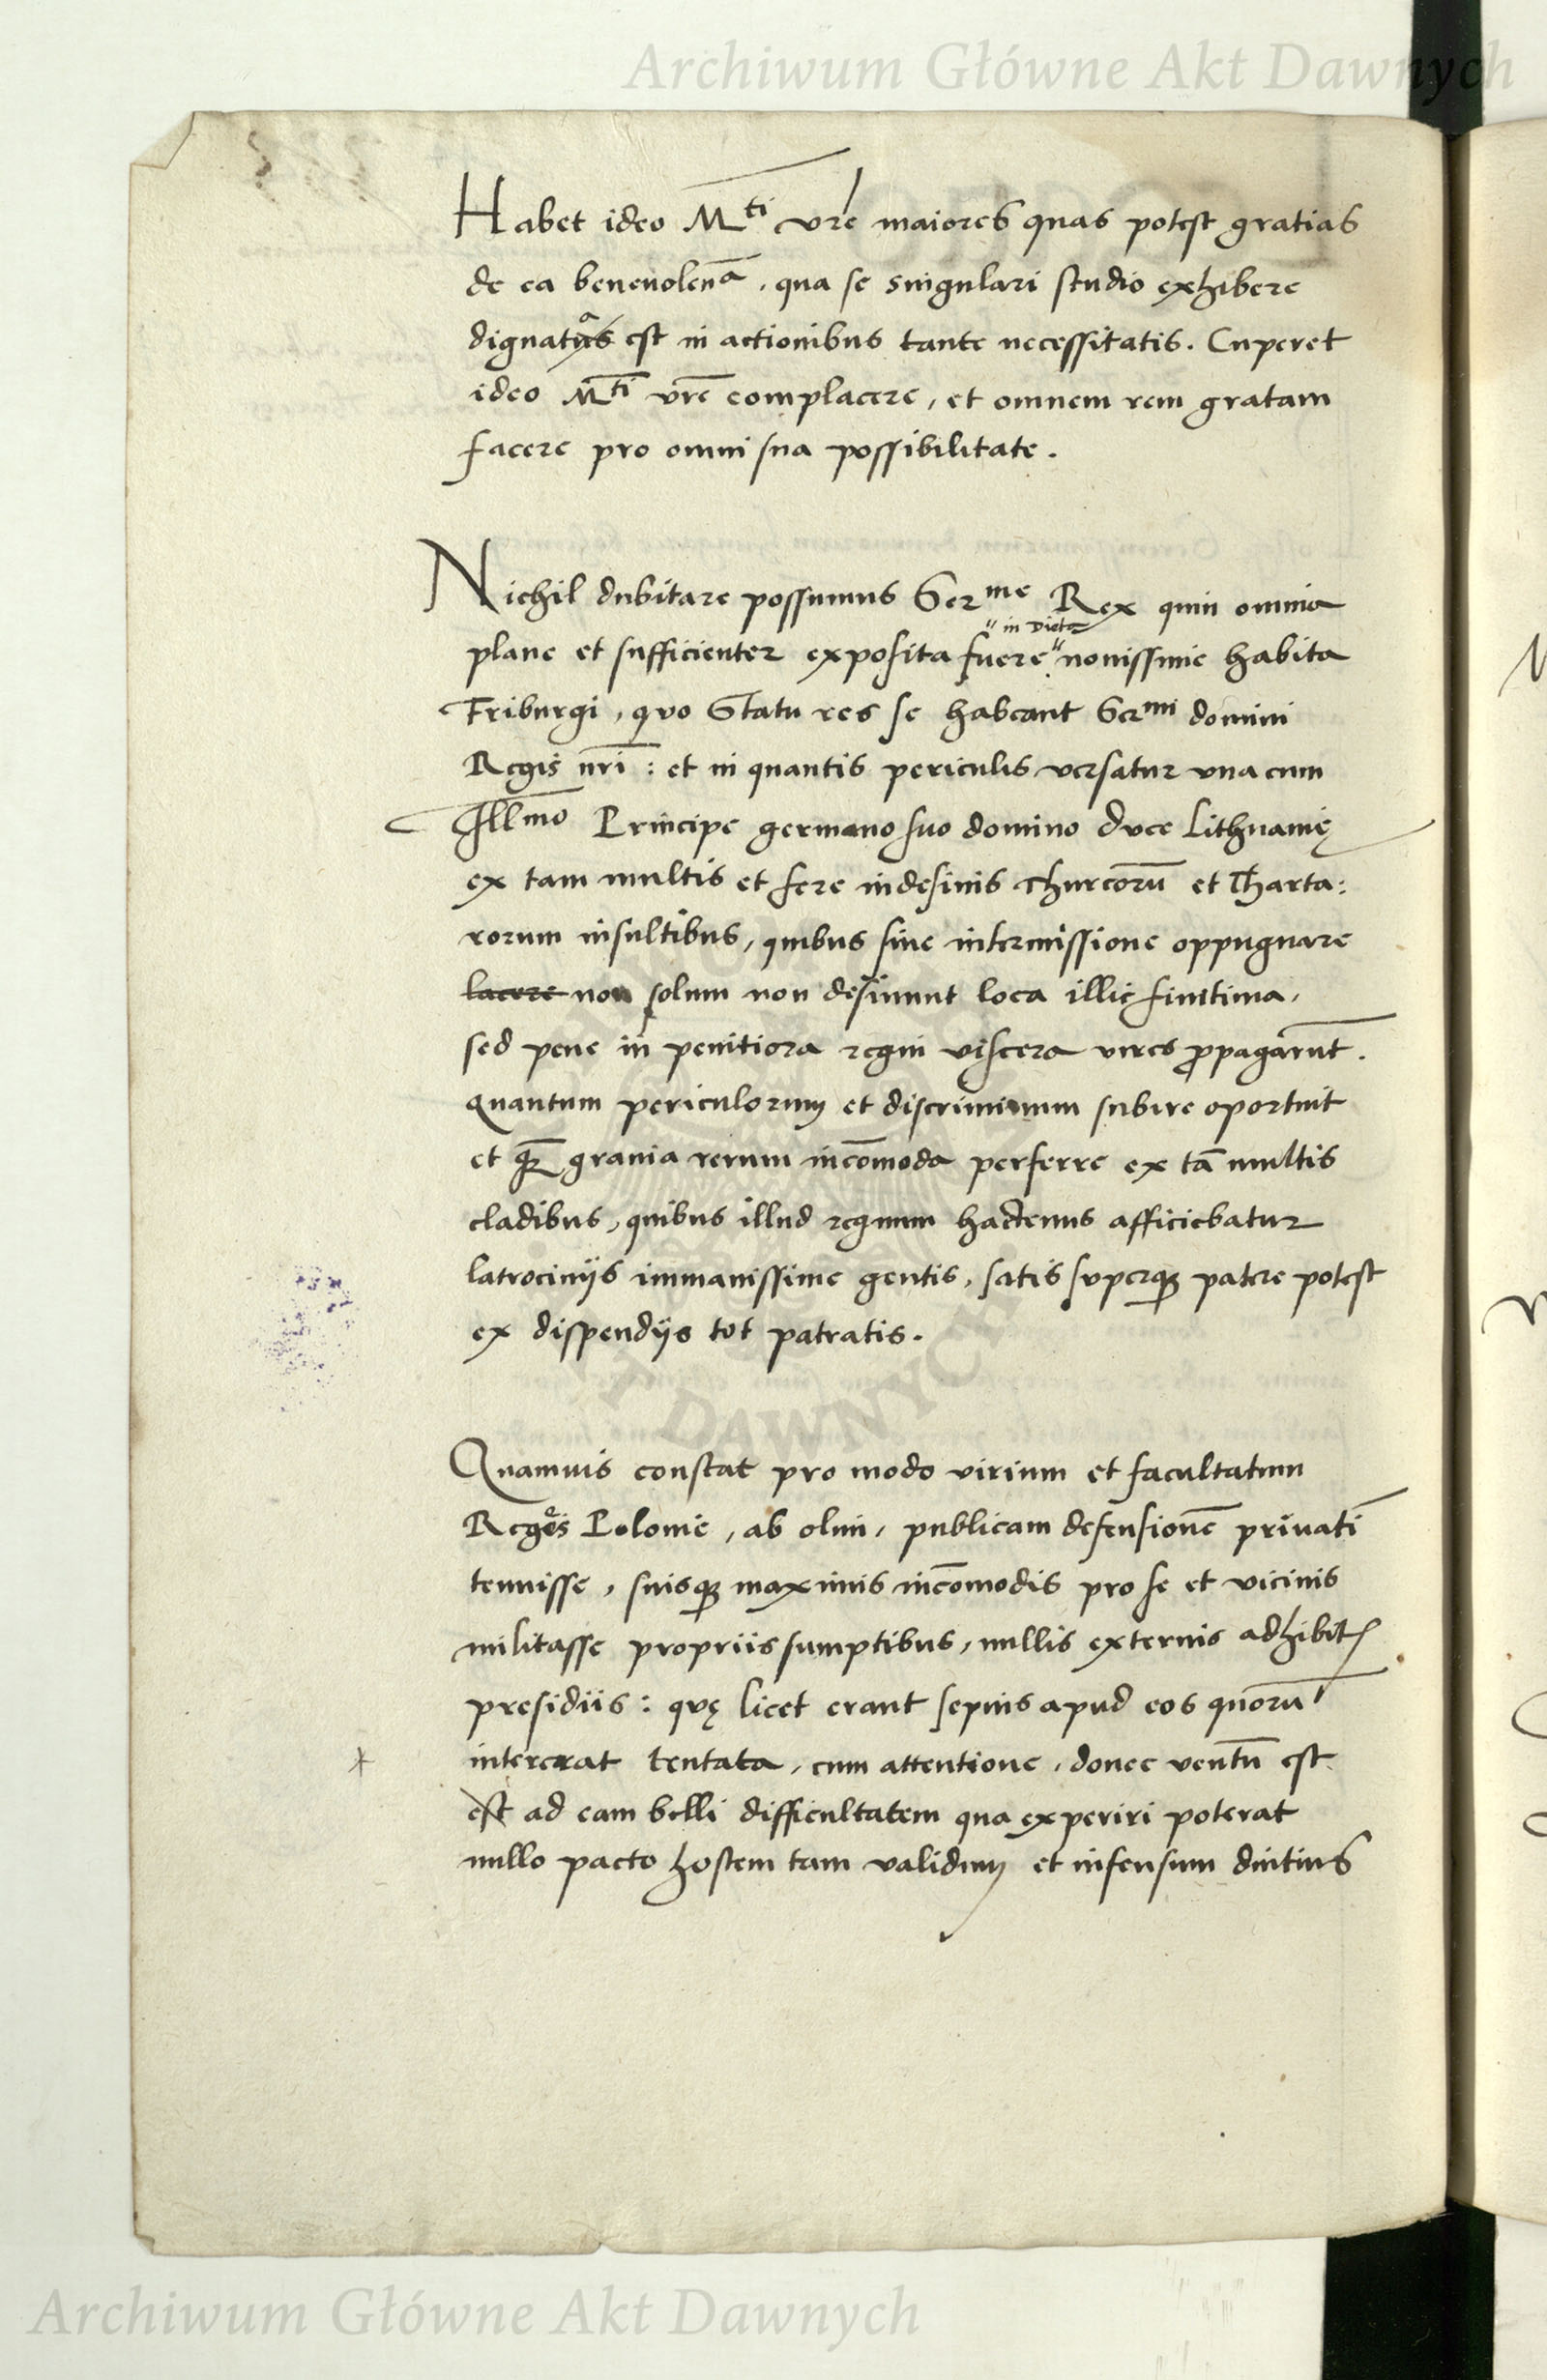 Archiwum Główne Akt Dawnych
Habet ideo M^ti vr̄e maiores quas potest gratias
de ea beneuolen^a, qua se singulari studio exhibere
dignata est in actionibus tante necessitatis. Cuperet
ideo M^ti vr̄e complacere, et omnem rem gratam
facere pro omni sua possibilitate.
Nichil dubitare possumus Ser^me Rex quin omnia
in Dieta
plane et sufficienter exposita fuere nouissime habita
Friburgi, quo Statu res se habeant Ser^mi domini
Regis nr̄i : et in quantis periculis versatur vna cum
Ill^mo Principe germano suo domino duce Lithuanię
ex tam multis et fere indesinis Thurcorū et Tharta:
rorum insultibus, quibus sine intermissione oppugnare
lacere non solum non desinunt loca illic finitima,
sed pene in penitiora regni viscera vires ꝓpagarūt.
quantum periculorum et discriminum subire oportuit
et q̄ꝫ grauia rerum incōmoda perferre ex tā multis
cladibus, quibus illud regnum hactenus afficiebatur
latrociniis immanissime gentis, satis superqꝫ patere potest
ex dispendiis tot patratis.
Quamuis constat pro modo virium et facultatum
Reges Polonie, ab olim, publicam defensionē priuatī
tenuisse, suisqꝫ maximis incōmodis pro se et vicinis
militasse propriis sumptibus, nullis externis adhibitꝭ
presidiis : quę licet erant sepius apud eos quorū
intererat tentata, cum attentione, donec ventū est
est ad eam belli difficultatem qua experiri poterat
nullo pacto hostem tam validum et infensum diutius
DAWNYCH
Archiwum Główne Akt Dawnych